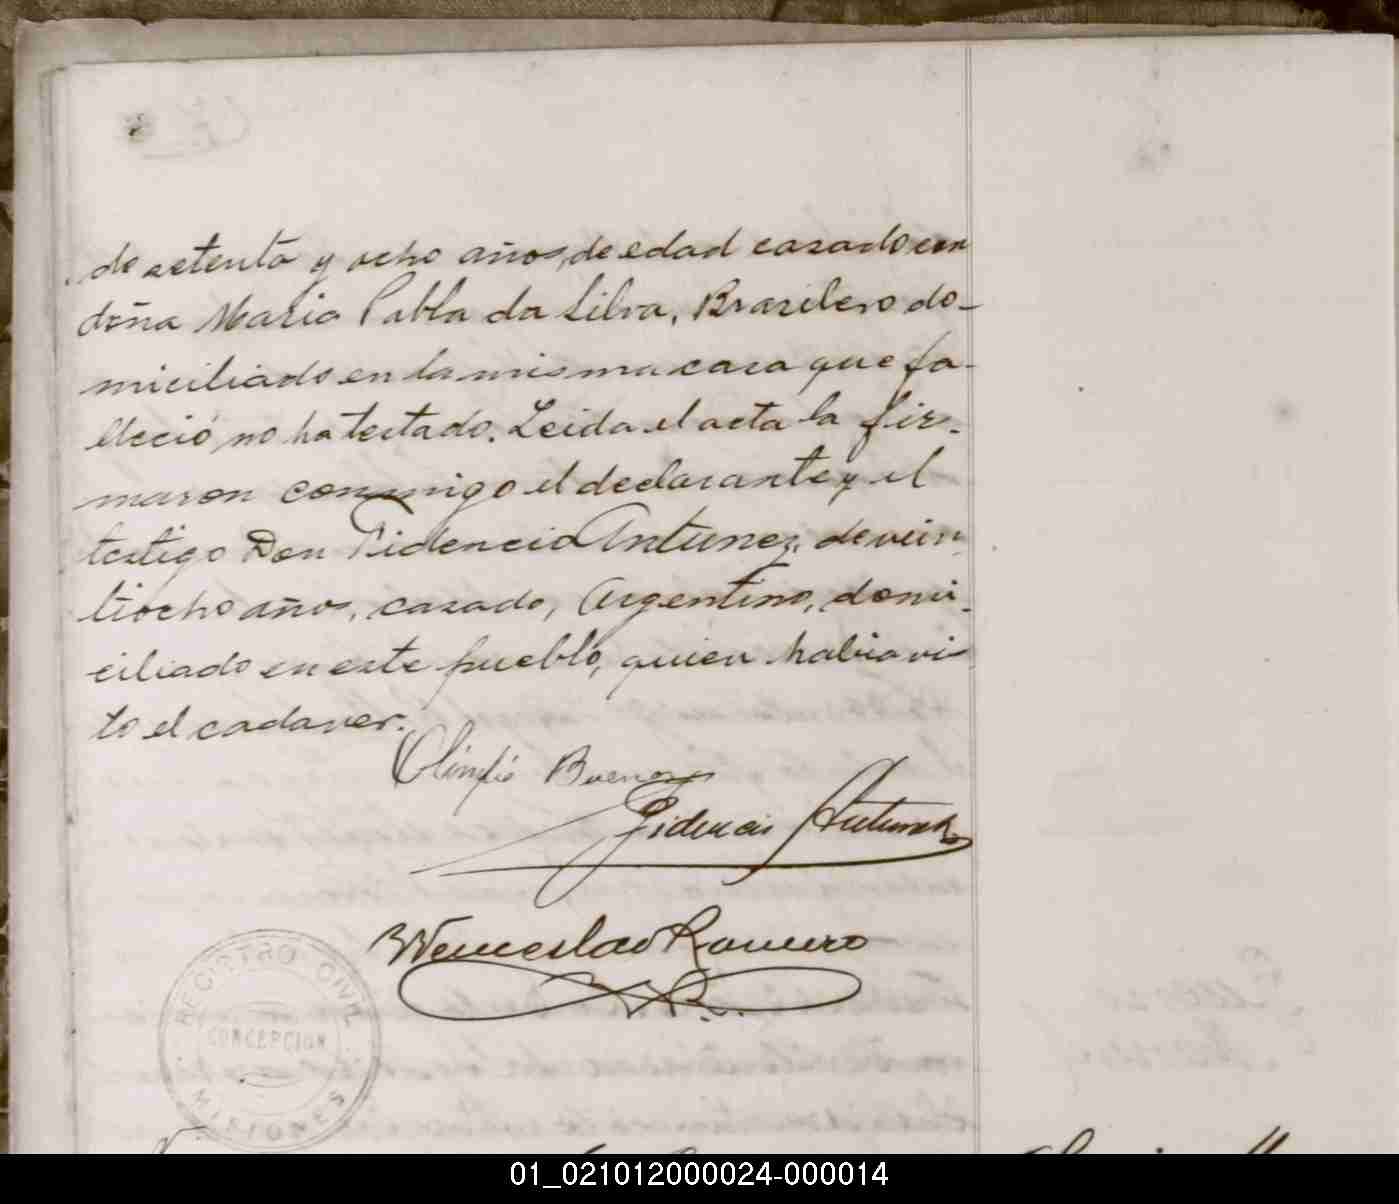 de setenta y ocho años, de edad casado con
doña Maria Pabla da Silva, Brasilero do-
miciliado en la misma casa que fa-
lleció no ha testado. Leida el acta la fir-
maron conmigo el declarante y el
testigo Don Fidencio Antunez, de vein
tiocho años, casado, Argentino, domi-
ciliado en este pueblo, quien habia vis
to el cadaver.
Olinfio Bueno
Fidencio Antunez
Wenceslao Romero
REGISTRO CIVIL
CONCEPCION
MISIONES
01_021012000024-000014